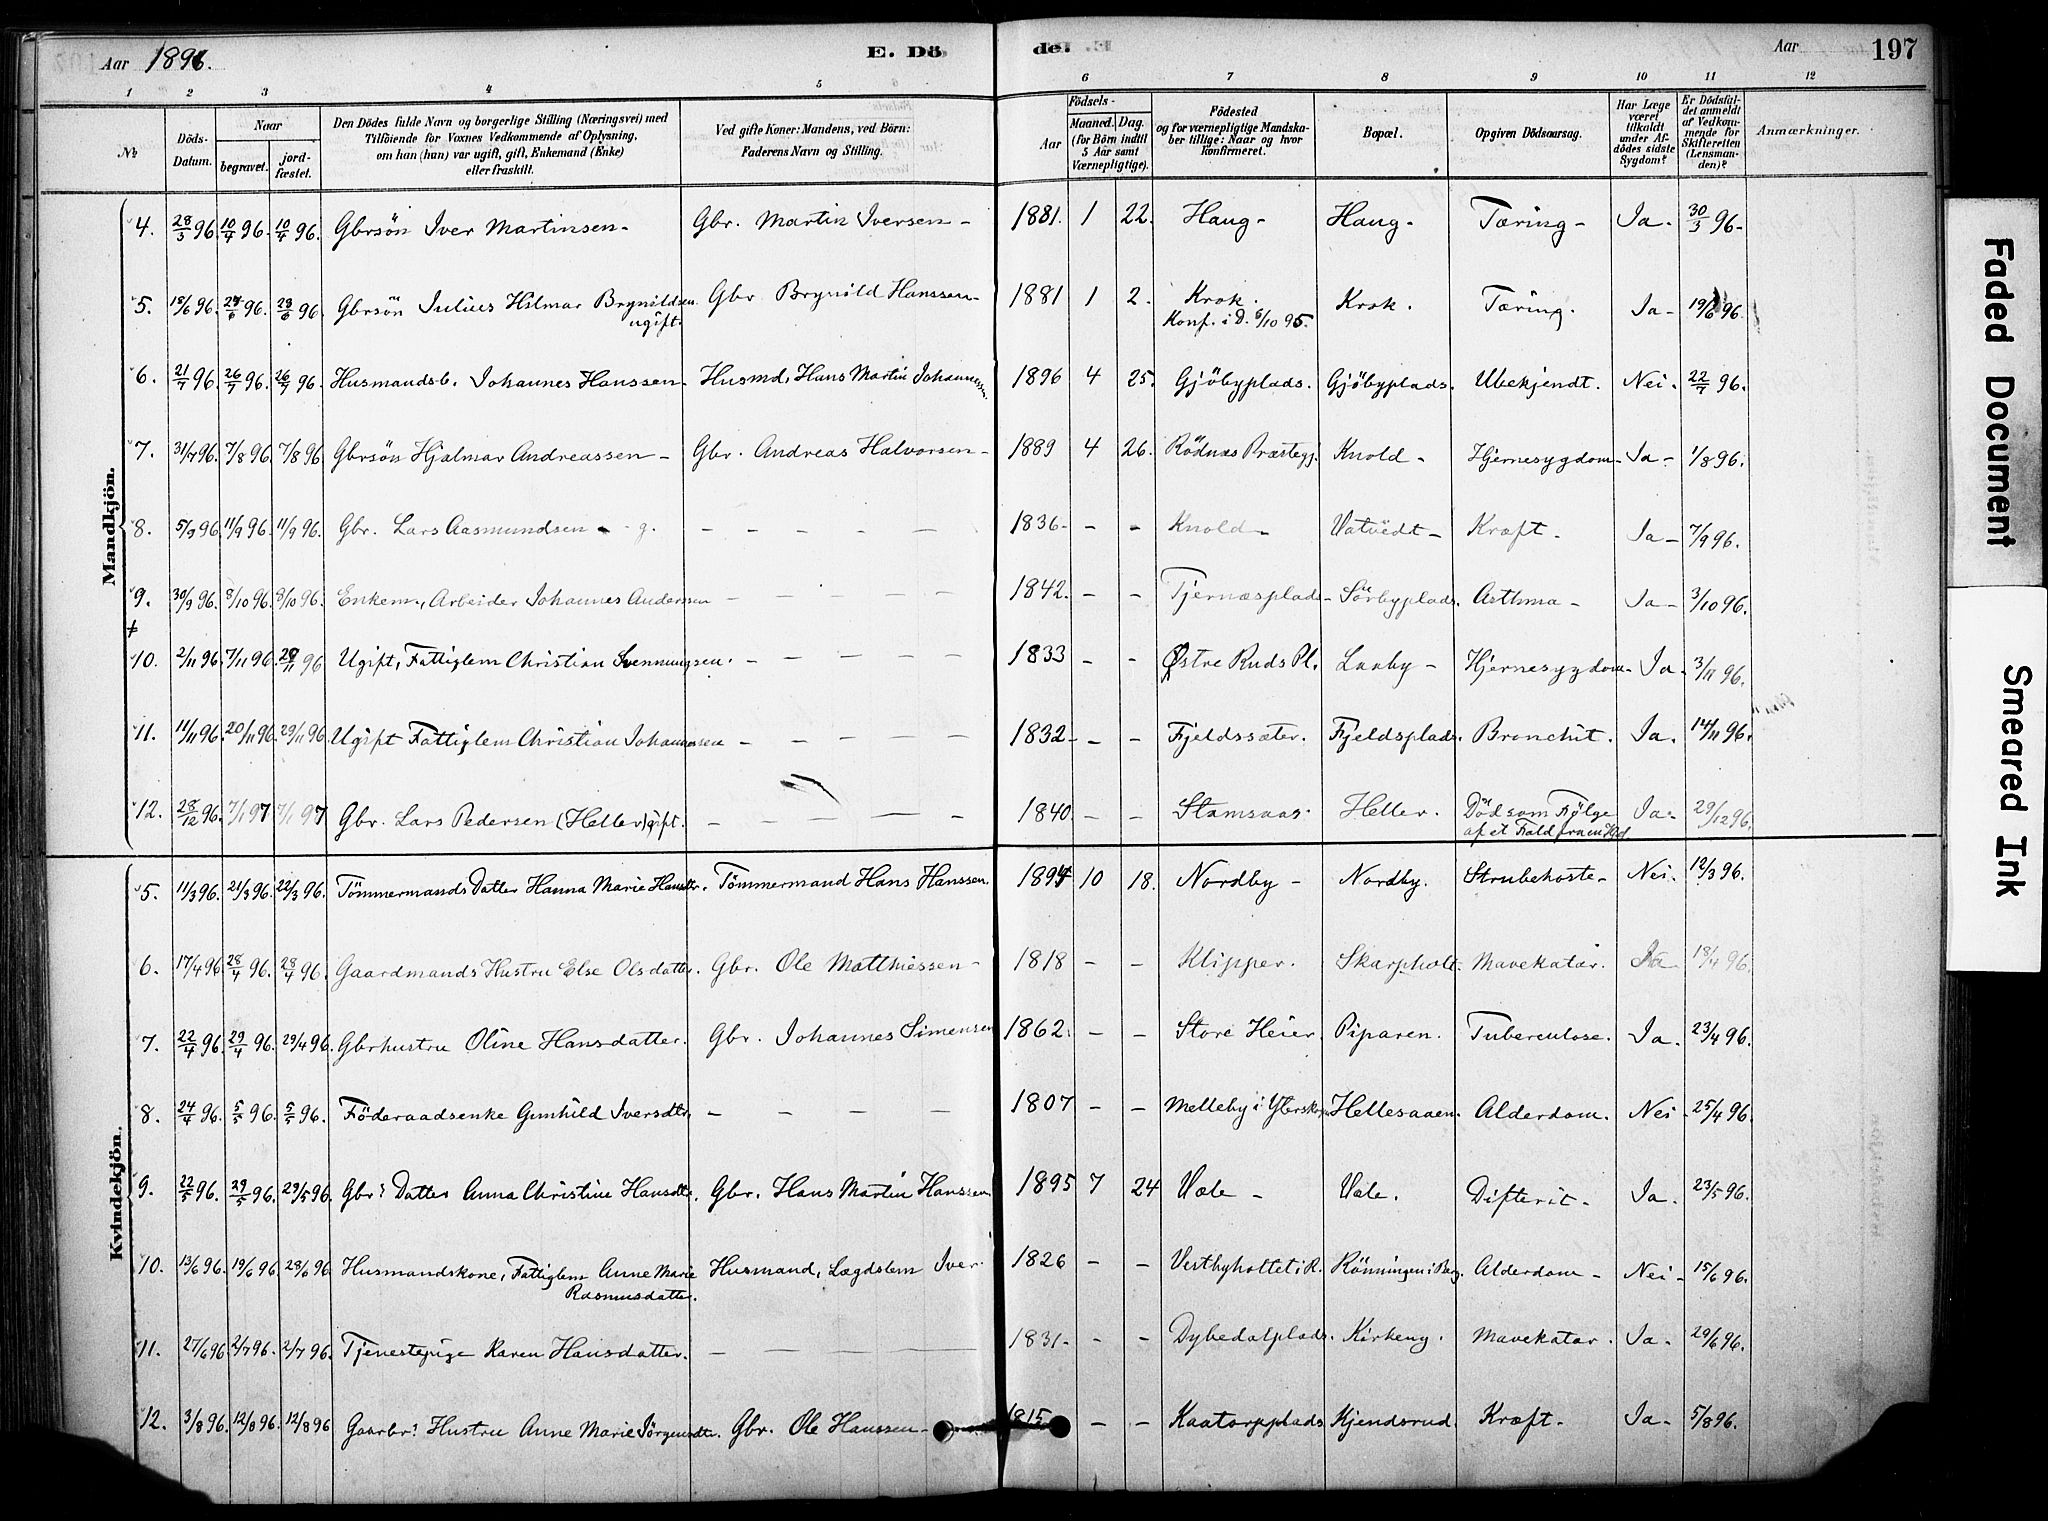 Aar 1896. E. Dö de. Aar 197
1 2 3 4 5 6 7 8 9 10 11 12
№ Döds-Datum. Naar begravet. jordfæstet. Den Dödes fulde Navn og borgerlige Stilling (Næringsvei) med Tilföiende for Voxnes Vedkommende af Oplysning, om han (hun) var ugift, gift, Enkemand (Enke) eller fraskilt. Ved gifte Koner: Mandens, ved Börn: Faderens Navn og Stilling. Födsels- Aar Maaned. Dag. (for Börn indtil 5 Aar samt Værnepligtige). Födested og for værnepligtige Mandskaber tillige: Naar og hvor konfirmeret. Bopæl. Opgiven Dödsaarsag. Har Læge været tilkaldt under Afdödes sidste Sygdom? Er Dödsfaldet anmeldt af Vedkommende for Skifteretten (Lensmanden)? Anmærkninger.
Mandkjön.
4. 28/3 96. 10/4 96. 10/4 96. Gbrsön Iver Martinsen - Gbr. Martin Iversen - 1881. 1 22. Haug - Haug - Tæring - Ja - 30/3 96 -
5. 18/6 96. 28/6 96. 28/6 96 Gbrsön Julius Hilmar Brynildsen ugift. Gbr. Brynild Hanssen - 1881 1 2. Krok. Konf. i D. 6/10 95. Krok. Tæring. Ja - 19/6 96.
6. 21/7 96. 26/7 96. 26/7 96. Husmandsb. Johannes Hanssen - Husmd. Hans Martin Johannessen 1896 4 25. Gjöbyplads. Gjöbyplads. Ubekjendt. Nei. 22/7 96.
7. 31/7 96. 7/8 96. 7/8 96 Gbrsön Hjalmar Andreassen - Gbr. Andreas Halvorsen - 1889 4 26. Rödnæs Præstegj. Knold - Hjernesygdom - Ja - 1/8 96.
8. 5/9 96. 11/9 96. 11/9 96. Gbr. Lars Aasmundsen - g. - - - - - 1836 - - - Knold - Vatvedt - Kræft - Ja - 7/9 96.
9. 30/9 96. 8/10 96. 8/10 96. Enkem., Arbeider Johannes Andersen - - - - 1842. - - Tjernæsplads - Sörbyplads. Asthma - Ja - 3/10 96.
10. 2/11 96. 7/11 96. 29/11 96 Ugift, Fattiglem Christian Svenningsen. - - - - 1833 - - Østre Ruds Pl. Laaby - Hjernesygdom - Ja - 3/11 96.
11. 11/11 96. 20/11 96. 29/11 96 Ugift Fattiglem Christian Johannessen - - - - 1832 - - - Fjeldssæter. Fjeldsplads. Bronchit. Ja. 14/11 96.
12. 28/12 96. 7/1 97 7/1 97 Gbr. Lars Pedersen (Heller) gift. - - - - - 1840 - - Stamsaas. Heller. Död som Fölge af et Fald fra en Ja. 29/12 96.
Kvindekjön.
5. 11/3 96. 21/3 96. 22/3 96. Tömmermands Datter Hanna Marie Hansdtr. Tömmermand Hans Hanssen. 1894 10 18. Nordby - Nordby. Strubehoste - Nei. 12/3 96.
6. 17/4 96. 28/4 96. 28/4 96. Gaardmands Hustru Else Olsdatter. Gbr. Ole Matthiessen - 1818 - - Klipper. Skarpholt. Mavekatar. Ja - 18/4 96.
7. 22/4 96. 29/4 96. 29/4 96. Gbrhustru Oline Hansdatter. Gbr. Johannes Simensen 1862. - - Store Heier. Piparen. Tuberculose. Ja. 23/4 96.
8. 24/4 96. 5/5 96. 5/5 96. Föderaadsenke Gunhild Iversdtr. - - - - 1807 - - Melleby i Yterskogn Hellesaaen. Alderdom. Nei - 25/4 96.
9. 22/5 96. 29/5 96. 29/5 96. Gbrs Datter Anna Christine Hansdtr. Gbr. Hans Martin Hanssen. 1895 7 24 Vale - Vale. Difterit - Ja. 23/5 96.
10. 13/6 96. 19/6 96. 28/6 96. Husmandskone, Fattiglem Anne Marie Rasmusdatter. Husmand, Lægdslem Iver 1826 - - Vestbyhottet i R. Rönningen i Berg. Alderdom - Nei - 15/6 96.
11. 27/6 96 2/7 96. 2/7 96. Tjenestepige Karen Hansdatter. - - - - 1831 - - - Dybedalplads. Kirkeng. Mavekatar. Ja. 29/6 96.
12. 3/8 96. 12/8 96. 12/8 96 Gaarbrs Hustru Anne Marie Jörgensdtr. Gbr. Ole Hanssen - 1815 - - Kaatorpplads Kjendsrud. Kræft - Ja - 5/8 96.
Faded Document
Smeared Ink